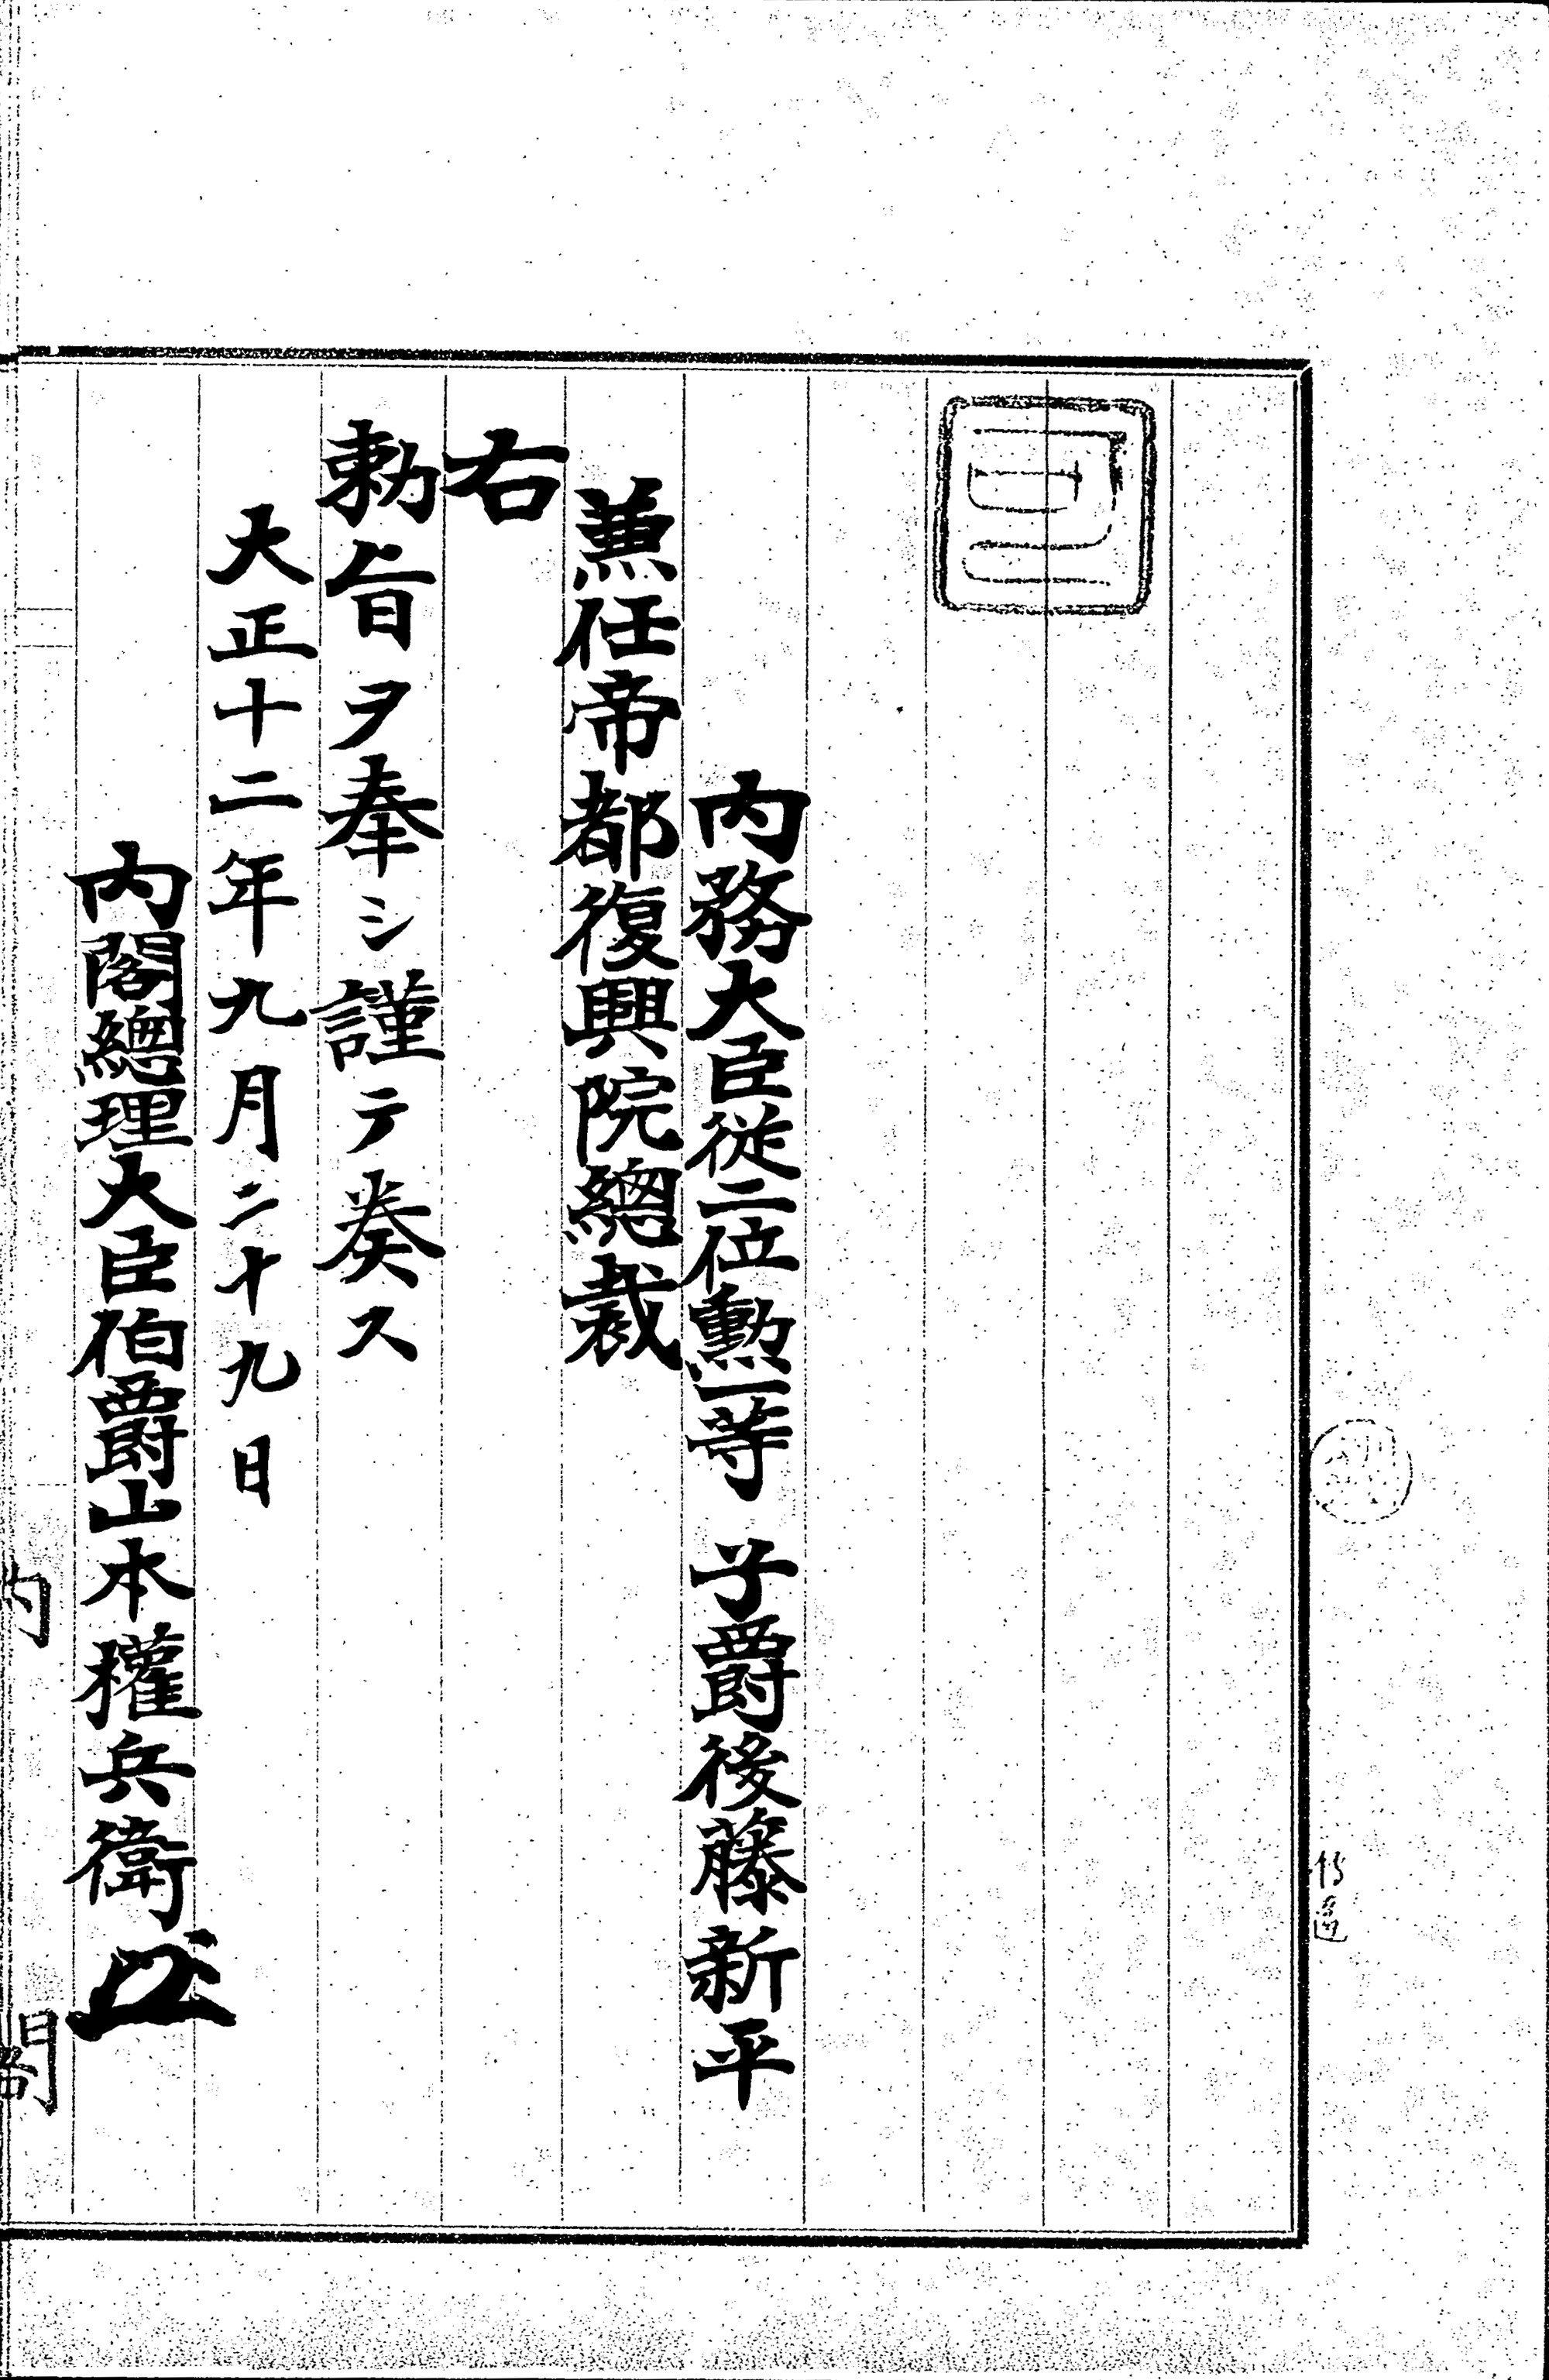 内務大臣従二位勲一等 子爵後藤新平
兼任帝都復興院總裁
右
勅旨ヲ奉シ謹テ奏ス
大正十二年九月二十九日
内閣總理大臣伯爵山本權兵衛
内閣